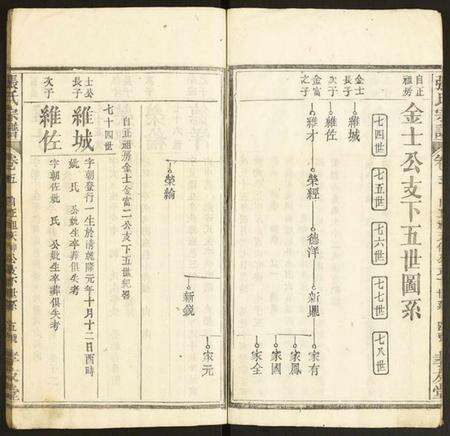 自正祖房
金士公支下五世圖系
七四世
七五世
七六世
七七世
七八世
金士長子
維城
次子
維佐
金富之子
維才
榮經
德洋
新鳳
家有
家鳳
家國
家全
榮綸
新銳
家元
自正祖房金士金富二公支下五世紀畧
七十四世
士公長子
維城
字朝登行一生於清乾隆元年十月十二日酉時
妣氏公妣生卒葬俱失考
次子
維佐
字朝佐妣氏公妣生卒葬俱失考
張氏宗譜
卷五